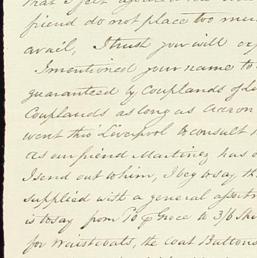 that I felt
friend do not place too mu
avail, I trust you will ex
I mentioned your name to
guaranteed by Couplands of L
Couplands as long as Aaron
went thro Liverpool to consult
as our friend Martinez, has o
I send out to him, I beg to say th
supplied with a general assortm
is to say from to Groce to 3/6
for Waistcoats, the Coat Buttons